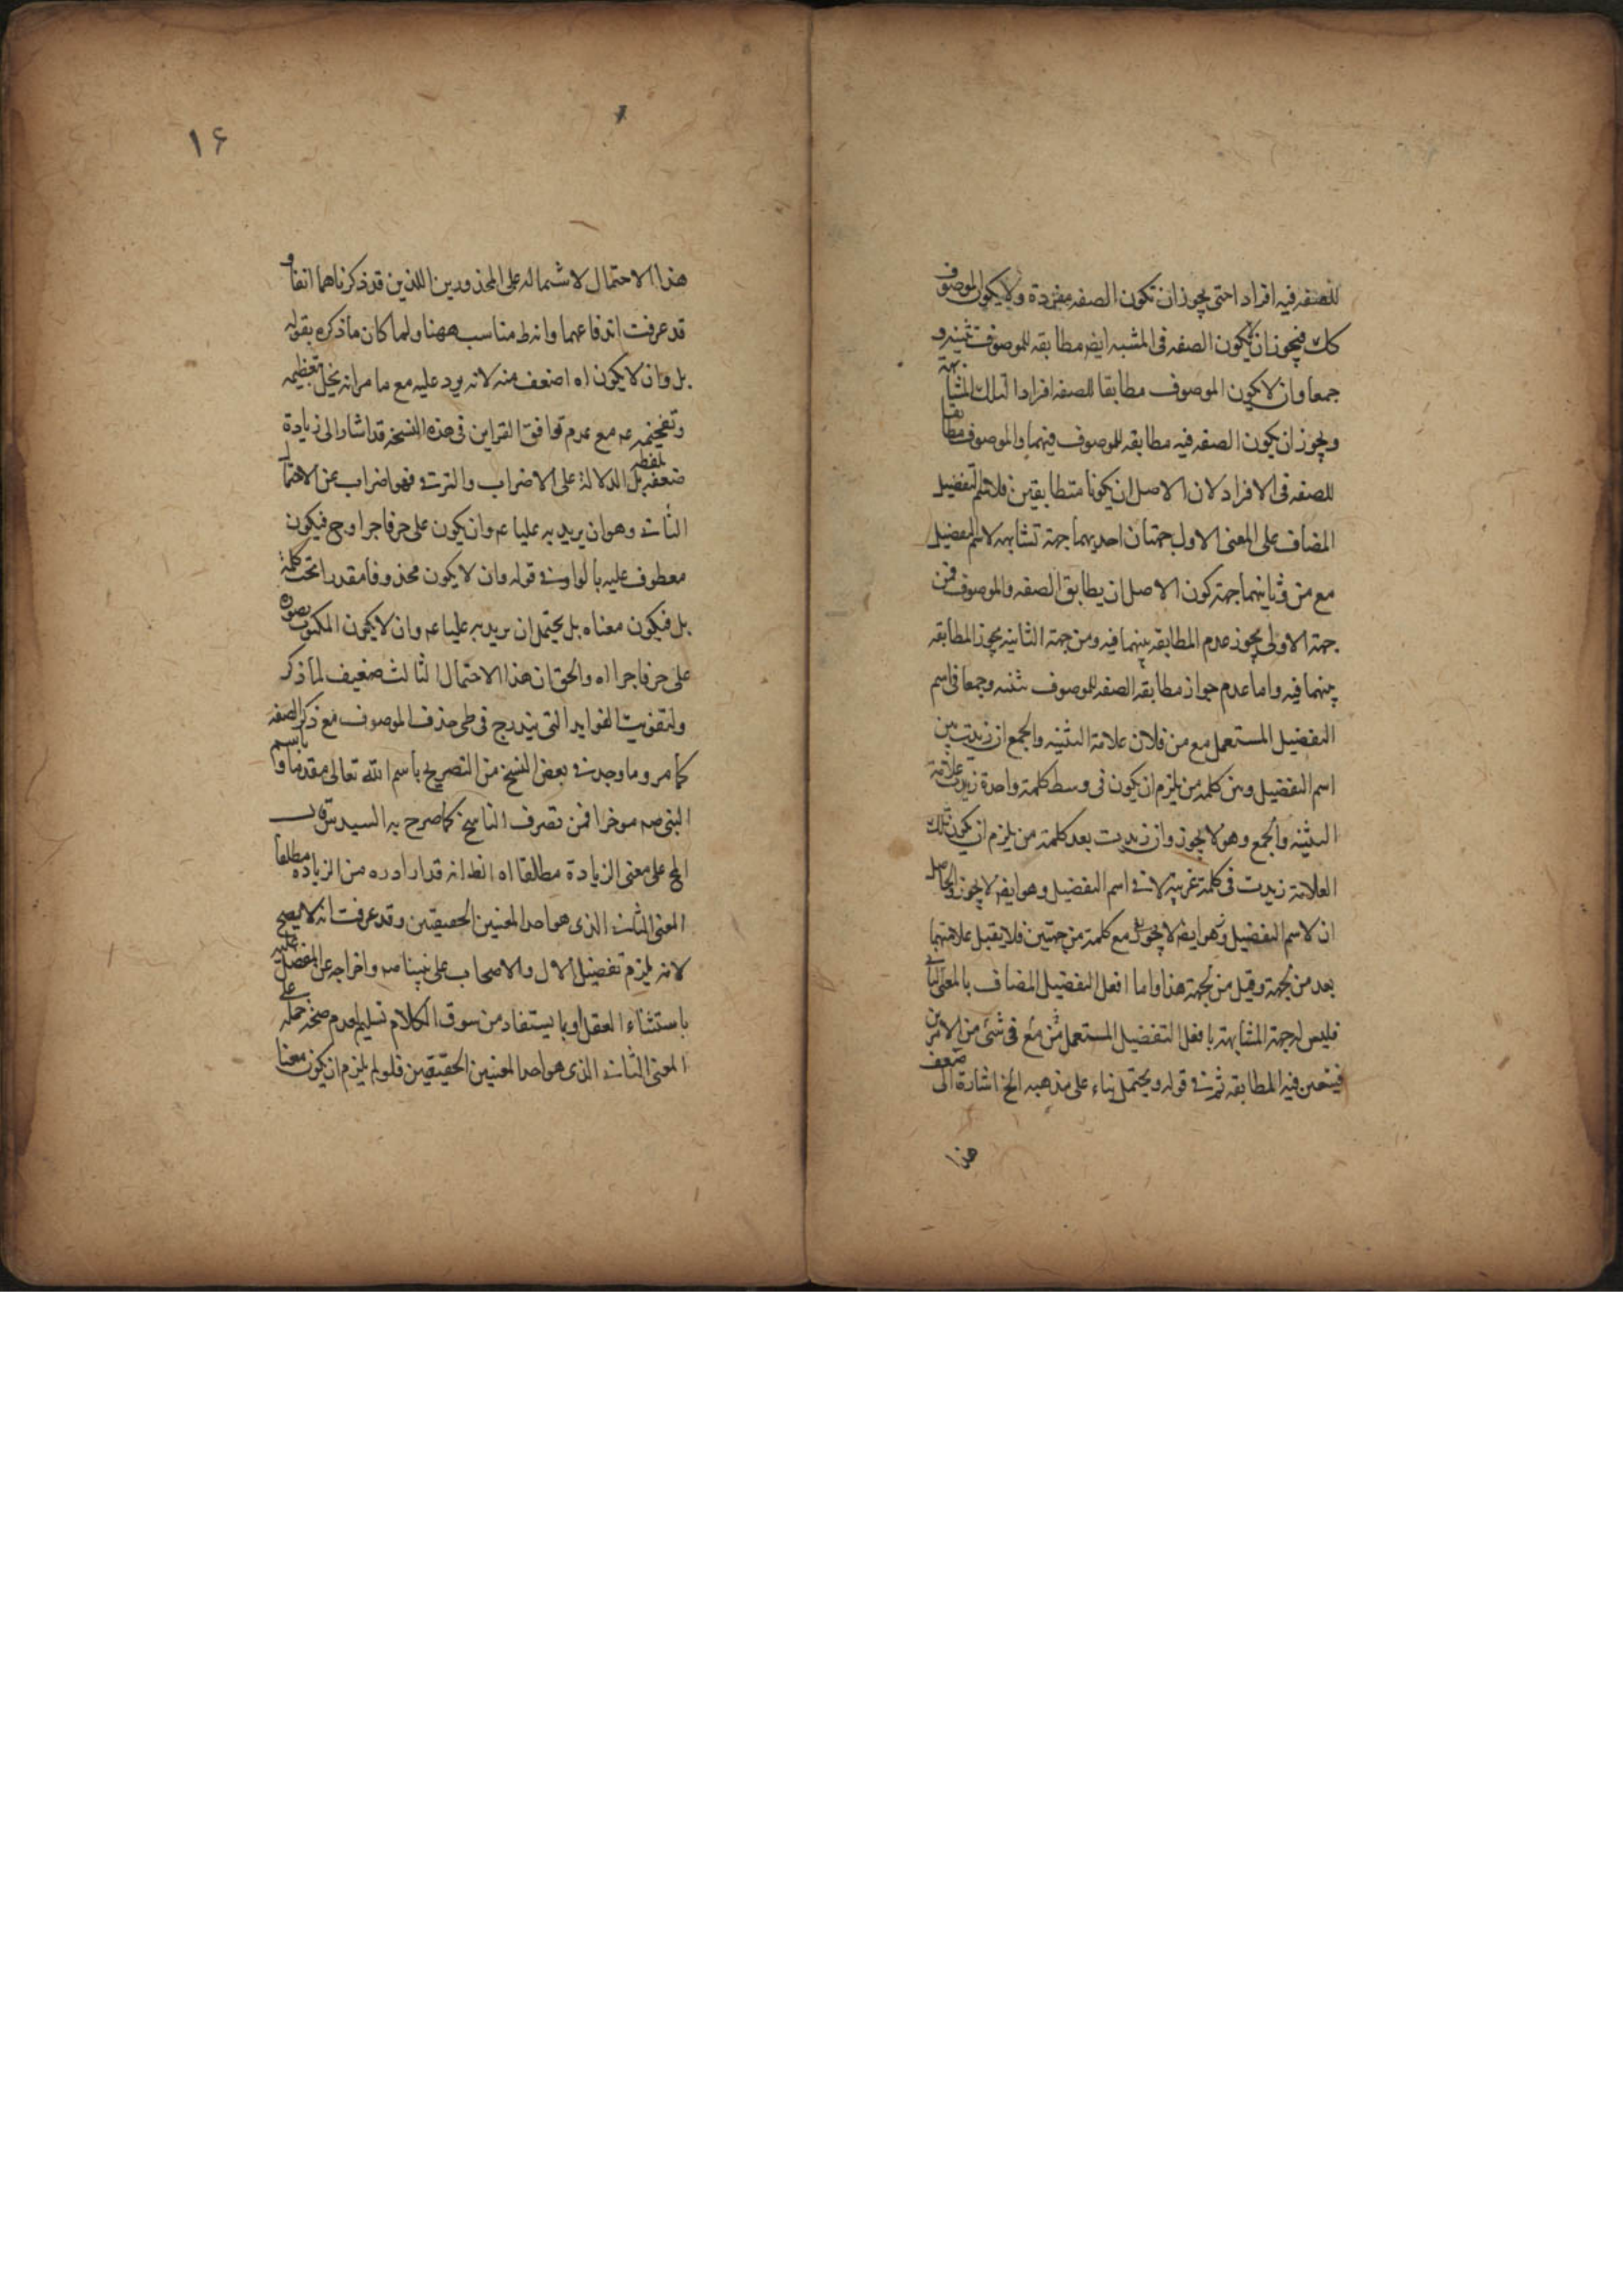 للصفه فيه افرادا حتى يجوز ان تكون الصفه مفردة ولا يكون الموصوف
كك فيجوز ان يكون الصفه فى المشبه ايضر مطابقه للموصوف تثنيه و
جمعا وان لا يكون الموصوف مطابقا للصفه افرادا لتلك المشابهة
ويجوز ان يكون الصفه فيه مطابقه للموصوف فيهما والموصوف مطابقا
للصفه فى الافراد لان الاصل ان يكونا متطابقين فلاسم التفضيل
المضاف على المعنى الاول جهتان احديهما جهة تشابهه لاسم التفضيل
مع من وثانيهما جهة كون الاصل ان يطابق الصفه والموصوف فمن
جهة الاولى يجوز عدم المطابقه بينهما فيه ومن جهة الثانيه يجوز المطابقه
بينهما فيه واما عدم جواز مطابقه الصفه للموصوف تثنيه وجمعا فى اسم
التفضيل المستعمل مع من فلان علامة التثنيه والجمع ان زيدت بين
اسم التفضيل وبين كلمة من يلزم ان يكون فى وسط كلمة واحدة زيدت علامة
التثنيه والجمع وهو لا يجوز وان زيدت بعد كلمة من يلزم ان يكون تلك
العلامة زيدت فى كلمة غريبة لا فى اسم التفضيل وهو ايضر لا يجوز والحاصل
ان لاسم التفضيل وهو ايضر لا يجوز مع كلمة من جهتين فلا يقبل علامتهما
بعد من بجهة وقبل من بجهة هذا واما افعل التفضيل المضاف بالمعنى الثانى
فليس له جهة المشابهة بافعل التفضيل المستعمل مع من فى شئ من الامرين
فيتعين فيه المطابقه ثم فى قوله ويحتمل بناء على مذهبه الخ اشارة الى ضعف
هذا
١۶
هذا الاحتمال لاشتماله على المحذورين اللذين قد ذكرناهما انفا و
قد عرفت اندفاعهما وانه ط مناسب ههنا ولما كان ما ذكره بقوله
بل وان لا يكون اه اضعف منه لانه يرد عليه مع ما مر انه يخل تعظيمه
وتفخيمه عم مع عدم توافق القراين فى هذه النسخه قد اشار الى زيادة
ضعفه بلفظ بل الدالة على الاضراب والترقى فهو اضراب عن الاحتمال
الثانى وهو ان يريد به عليا عم وان يكون على حرفا جرا وح فيكون
معطوف عليه بالواو فى قوله وان لا يكون محذوفا مقدرا تحت كلمة
بل فيكون معناه بل يحتمل ان يريد به عليا عم وان لا يكون المكتوب بصورة
على حرفا جرا اه والحق ان هذا الاحتمال الثالث ضعيف لما ذكر
ولتفويت الفوايد التى يندرج فى طى حذف الموصوف مع ذكر الصفه
كما مر وما وجد فى بعض النسخ من التصريح باسم الله تعالى مقدما وباسم
النبى صه موخرا فمن تصرف الناسخ كما صرح به السيد
الخ على معنى الزيادة مطلقا اه الظ انه قد اراد به من الزياده مطلقا
المعنى الثانى الذى هو احد المعنيين الحقيقيين وقد عرفت انه لا يصح
لانه يلزم تفضيل الال والاصحاب على نبينا صه واخراجه عن المفضل عليه
باستثناء العقل او بما يستفاد من سوق الكلام تسليم لعدم صحة حمله على
المعنى الثانى الذى هو احد المعنيين الحقيقيين فلو لم يلزم ان يكون معنا